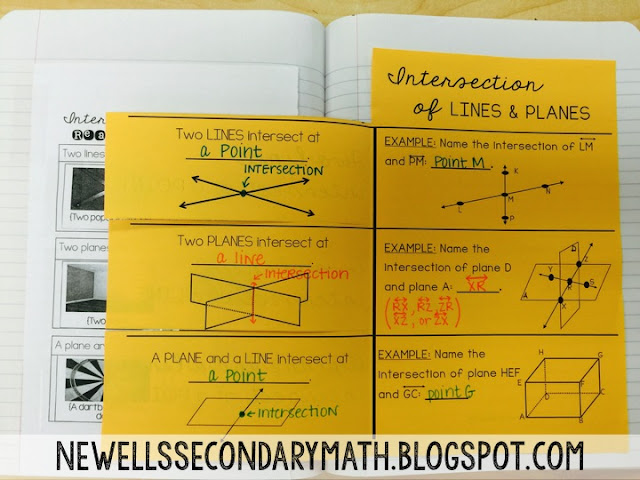 Intersection
of LINES & PLANES
Inter
Rea
Two lines
(Two pop
Two planes
(Two
A plane an
(A dartb
Two LINES intersect at
a Point.
INTERSECTION
EXAMPLE: Name the intersection of LM
and PM: Point M.
K
L
M
N
P
Two PLANES intersect at
a line.
intersection
EXAMPLE: Name the
intersection of plane D
and plane A: XR.
(RX, RZ, ZR
XZ, or ZX)
D
Z
Y
R
S
A
X
A PLANE and a LINE intersect at
a point.
intersection
EXAMPLE: Name the
intersection of plane HEF
and GC: point G
H
G
E
F
D
C
A
B
NEWELLSSECONDARYMATH.BLOGSPOT.COM